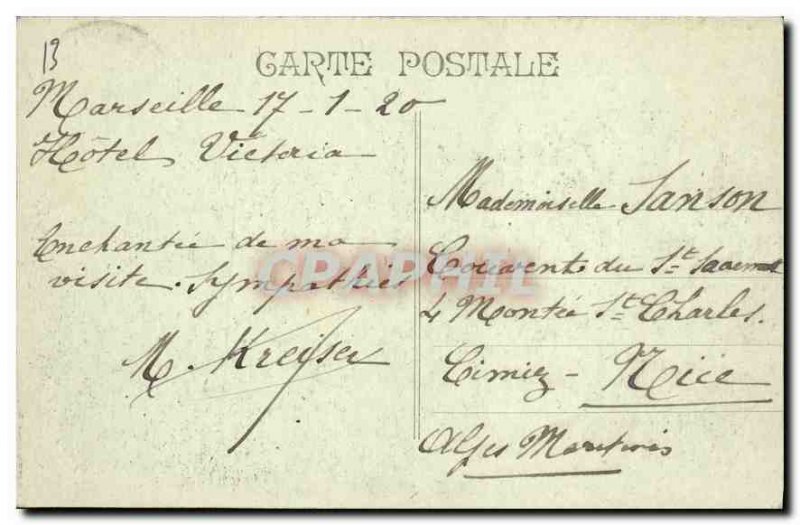 13
CARTE POSTALE
Marseille 17-1-20
Hôtel Victoria
Enchantée de ma
visite. Sympathies
M. Kreiser
Mademoiselle Janson
Couvent du St Sacement
4 Montée St Charles.
Cimiez - Nice
Alpes Maritimes
CPAPHIL